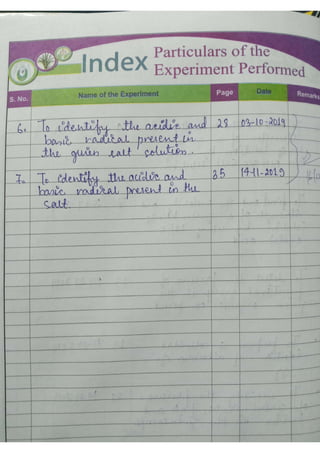 Index Particulars of the
Experiment Performed
S. No. Name of the Experiment Page Date Remarks
6. To identify the acidic and 28 03-10-2019
basic radical present in
the given salt solution.
7. To identify the acidic and 35 14-11-2019
basic radical present in the
salt.